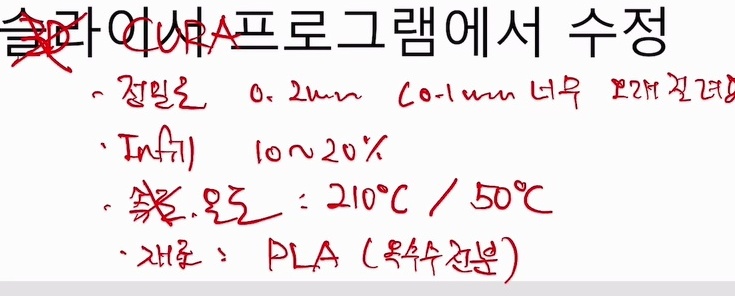 슬라이서 프로그램에서 수정
3D CURA
· 정밀도 0.2mm (0.1mm 너무 오래 걸려요
· Infill 10~20%
· 온도 : 210°C / 50°C
· 재료 : PLA (옥수수 전분)